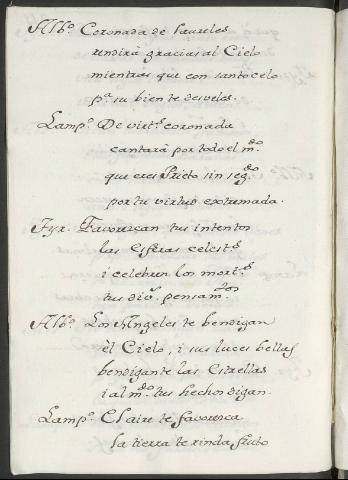 Alb.º Coronada de laureles
rendirá gracias al Cielo
mientras que con santo celo
p.ª su bien te desvelas.
Lamp.º De virt.s coronada
cantará por todo el m.do
que eres Prieto sin seg.do
por tu virtud extremada.
Tyr. Favorezcan tus intentos
las esferas celest.s
i celebren los mort.s
tus div.s pensam.tos
Alb.º Los Angeles te bendigan
èl Cielo, i sus luces bellas
bendigante las Estrellas
i al m.do tus hechos digan.
Lamp.º El aire te favorezca
la tierra te rinda fruto